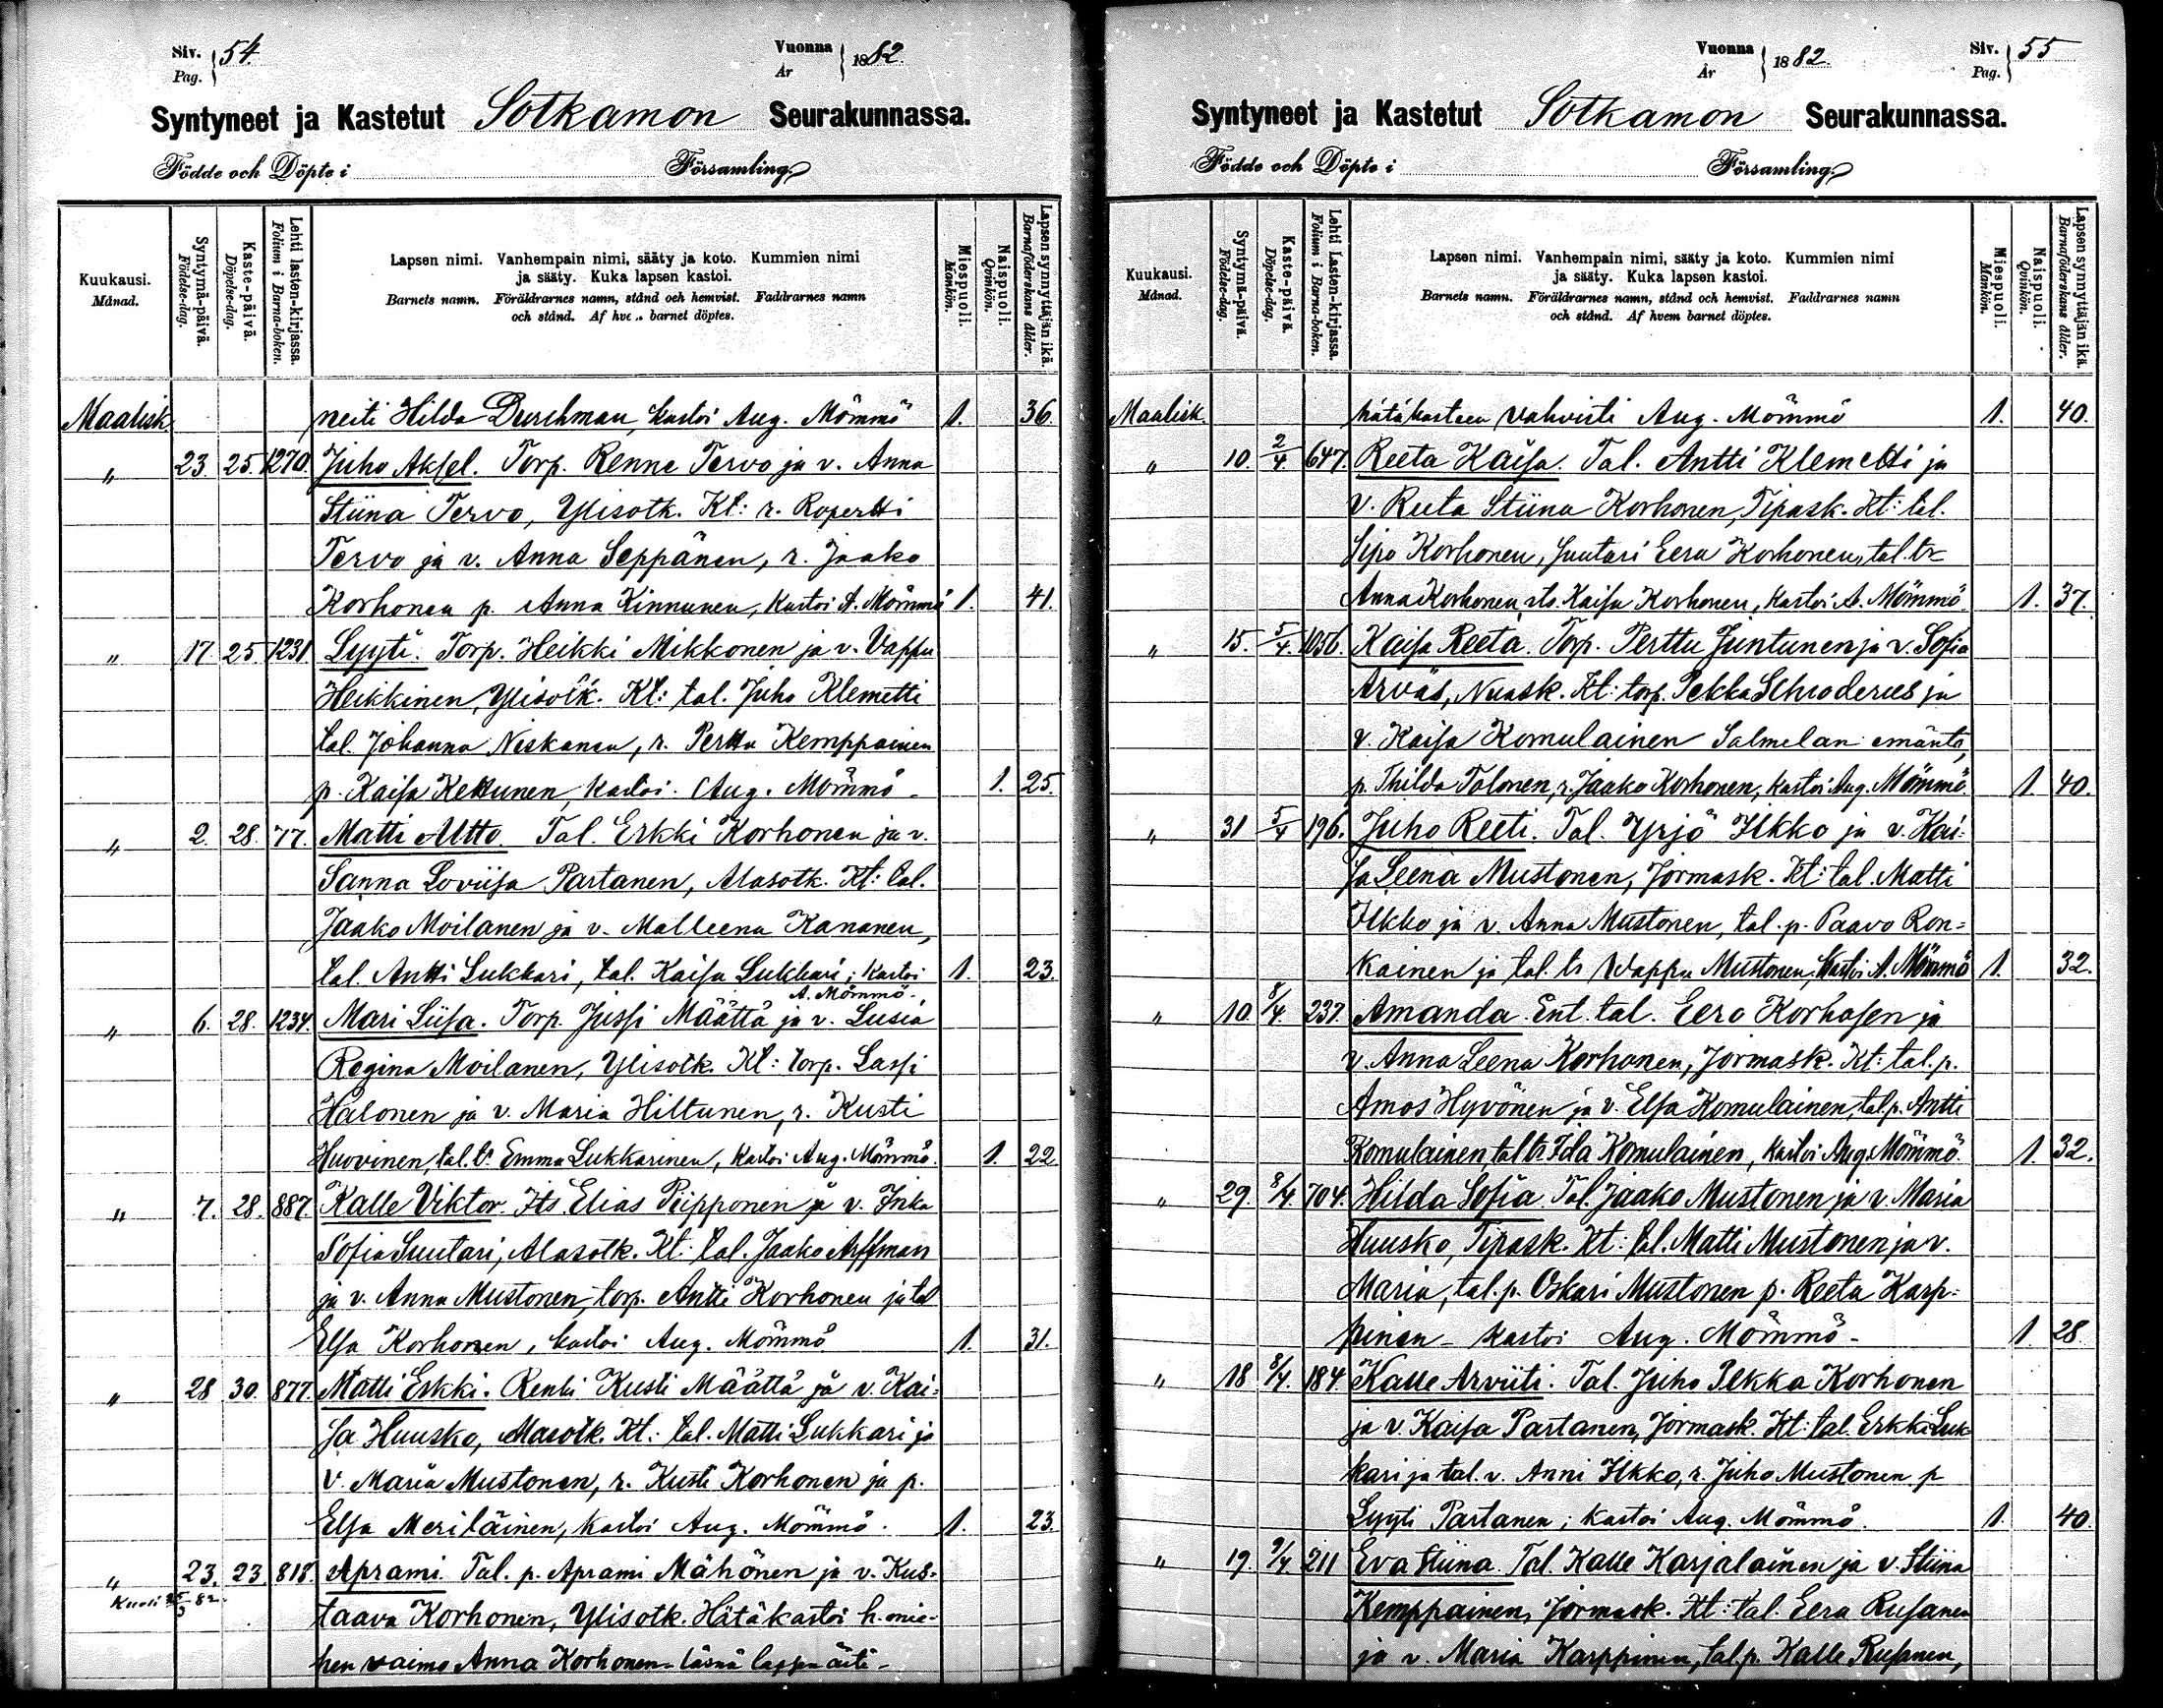 Siv. 54.
Pag.
Vuonna 1882.
År
Syntyneet ja Kastetut Sotkamon Seurakunnassa.
Födde och Döpte i Församling.
Kuukausi.
Månad.
Syntymä-päivä.
Födelse-dag.
Kaste-päivä.
Döpelse-dag.
Lehti lasten-kirjassa.
Folium i Barna-boken.
Lapsen nimi. Vanhempain nimi, sääty ja koto. Kummien nimi
ja sääty. Kuka lapsen kastoi.
Barnets namn. Föräldrarnes namn, stånd och hemvist. Faddrarnes namn
och stånd. Af hvem barnet döptes.
Miespuoli.
Mankön.
Naispuoli.
Qvinkön.
Lapsen synnyttäjän ikä.
Barnaföderskans ålder.
Maalisk. neiti Hilda Durchman, kastoi Aug. Mömmö 1. 36.
" 23. 25. 1270. Juho Aksel. Torp. Renne Tervo ja v. Anna
Stiina Tervo, Ylisotk. Kt: r.Ropertti
Tervo ja v. Anna Seppänen, r. Jaako
Korhonen p. Anna Kinnunen, kastoi A. Mömmö 1. 41.
" 17. 25. 1231. Lyyti. Torp. Heikki Mikkonen ja v. Vappu
Heikkinen, Ylisotk. Kt: tal. Juho Klemetti
tal. Johanna Niskanen, r. Perttu Kemppainen
p. Kaisa Kettunen, kastoi Aug. Mömmö. 1. 25.
" 2. 28. 77. Matti Altto. Tal. Erkki Korhonen ja v.
Sanna Loviisa Partanen, Alasotk. Kt: tal.
Jaako Moilanen ja v. Malleena Kananen,
tal. Antti Lukkari, tal. Kaisa Lukkari; kastoi 1. 23.
A. Mömmö.
" 6. 28. 1234. Mari Liisa. Torp. Jussi Määttä ja v. Lusia
Regina Moilanen, Ylisotk. Kt: torp. Lassi
Halonen ja v. Maria Hiltunen, r. Kusti
Huovinen, tal. tr. Emma Lukkarinen, kastoi Aug. Mömmö. 1. 22
" 7. 28. 887. Kalle Viktor. Its. Elias Piipponen ja v. Inka
Sofia Suutari, Alasotk. Kt: tal. Jaako Arffman
ja v. Anna Mustonen, torp. Antti Korhonen ja tal
Elsa Korhonen, kastoi Aug. Mömmö 1. 31.
" 28 30. 877. Matti Erkki. Renki Kusti Määttä ja v. Kai-
sa Huusko, Alasotk. Kt: tal. Matti Lukkari ja
v. Maria Mustonen, r. Kusti Korhonen ja p.
Elsa Meriläinen, kastoi Aug. Mömmö. 1. 23.
" 23. 23. 818. Aprami. Tal. p. Aprami Mähönen ja v. Kus-
taava Korhonen, Ylisotk. Hätäkastoi h. mie-
hen vaimo Anna Korhonen - läsnä lapsen äiti -
Siv. 55
Pag.
Vuonna 1882.
År
Syntyneet ja Kastetut Sotkamon Seurakunnassa.
Födde och Döpte i Församling.
Kuukausi.
Månad.
Syntymä-päivä.
Födelse-dag.
Kaste-päivä.
Döpelse-dag.
Lehti Lasten-kirjassa.
Folium i Barna-boken.
Lapsen nimi. Vanhempain nimi, sääty ja koto. Kummien nimi
ja sääty. Kuka lapsen kastoi.
Barnets namn. Föräldrarnes namn, stånd och hemvist. Faddrarnes namn
och stånd. Af hvem barnet döptes.
Miespuoli.
Mankön.
Naispuoli.
Qvinkön.
Lapsen synnyttäjän ikä.
Barnaföderskans ålder.
Maalisk. hätäkasteen vahvisti Aug. Mömmö 1. 40.
" 10. 2/4 647. Reeta Kaisa. Tal. Antti Klemetti ja
v. Reeta Stiina Korhonen, Tipask. Kt: tal.
Sipo Korhonen, Suutari Eera Korhonen, tal. tr
Anna Korhonen, its Kaisa Korhonen, kastoi A. Mömmö 1. 37.
" 15. 5/4. 1056. Kaisa Reeta. Torp. Perttu Juntunen ja v. Sofia
Arväs, Nuask. Kt: torp. Pekka Schroderus ja
v. Kaisa Komulainen Salmelan emäntä,
p. Thilda Tolonen, r. Jaako Korhonen, kastoi Aug. Mömmö. 1. 40.
" 31 5/4 196. Juho Reeti. Tal. Yrjö Ilkko ja v. Kai-
sa Leena Mustonen, Jormask. Kt: tal. Matti
Ilkko ja v. Anna Mustonen, tal. p. Paavo Ron-
kainen ja tal. tr Wappu Mustonen, kastoi A. Mömmö 1. 32.
" 10. 8/4. 237. Amanda. Ent. tal. Eero Korhosen ja
v. Anna Leena Korhonen, Jormask. Kt: tal. p.
Amos Hyvönen ja v. Elsa Komulainen, tal. p. Antti
Komulainen, tal tr Ida Komulainen, kastoi Aug. Mömmö. 1. 32.
" 29. 8/4. 704. Hilda Sofia. Tal. Jaako Mustonen ja v. Maria
Huusko, Tipask. Kt: tal. Matti Mustonen ja v.
Maria, tal. p. Oskari Mustonen p. Reeta Karp-
pinen - kastoi Aug. Mömmö - 1 28.
" 18 8/4. 184. Kalle Arviiti. Tal. Juho Pekka Korhonen
ja v. Kaisa Partanen, Jormask. Kt: tal. Erkki Luk-
kari ja tal. v. Anni Ilkko, r. Juho Mustonen p
Lyyti Partanen; kastoi Aug. Mömmö. 1. 40.
" 19. 9/4 211 Eva Stiina. Tal. Kalle Karjalainen ja v. Stiina
Kemppainen, Jormask. Kt: tal. Eera Rusanen
ja v. Maria Karppinen, tal. p. Kalle Rusanen,